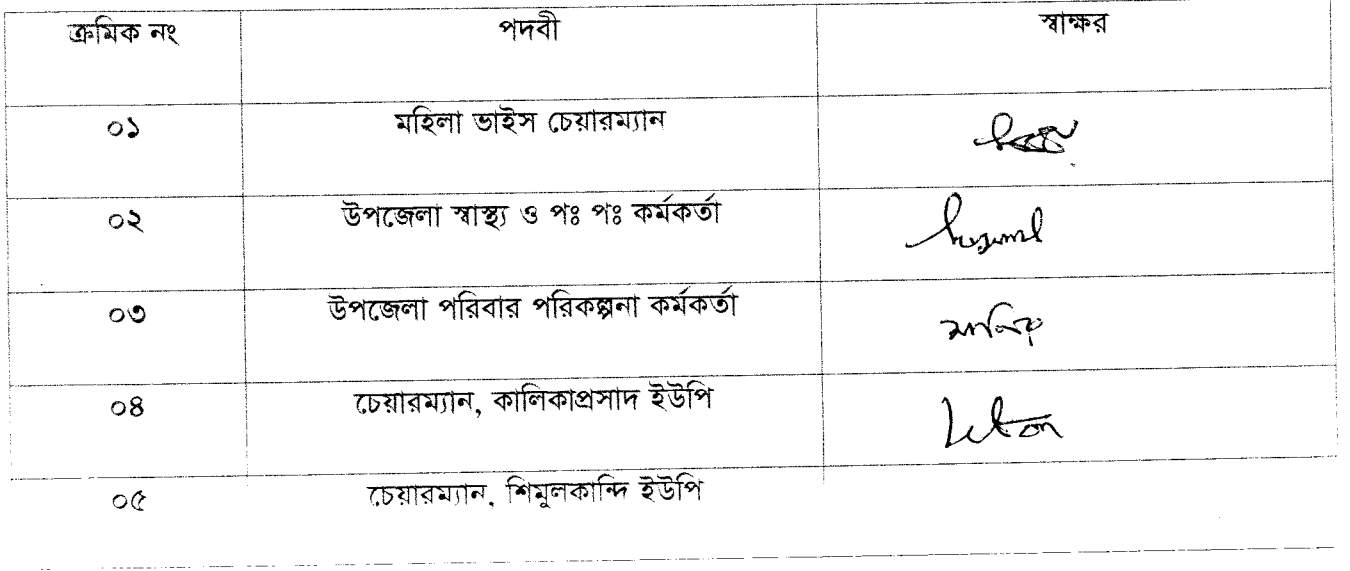 ক্রমিক নং পদবী স্বাক্ষর
০১ মহিলা ভাইস চেয়ারম্যান
০২ উপজেলা স্বাস্থ্য ও পঃ পঃ কর্মকর্তা
০৩ উপজেলা পরিবার পরিকল্পনা কর্মকর্তা
০৪ চেয়ারম্যান, কালিকাপ্রসাদ ইউপি
০৫ চেয়ারম্যান, শিমুলকান্দি ইউপি